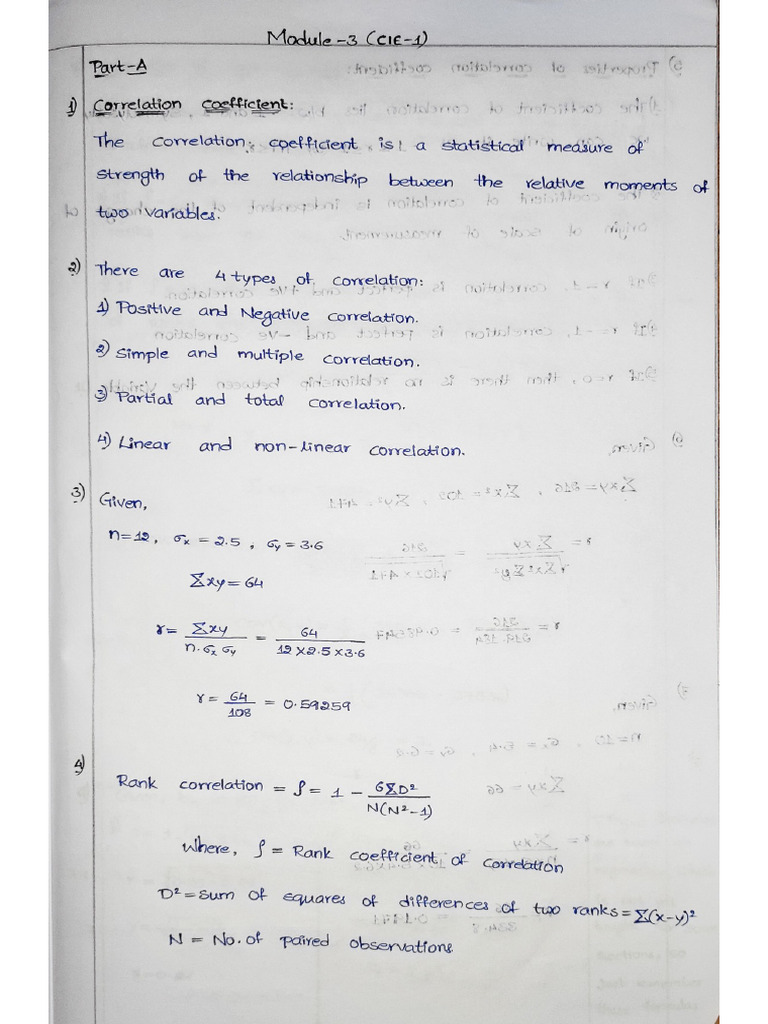 Module-3 (CIE-1)
Part-A
1) Correlation Coefficient:
The correlation coefficient is a statistical measure of
strength of the relationship between the relative moments of
two variables.
2) There are 4 types of correlation:
1) Positive and Negative correlation.
2) Simple and multiple correlation.
3) Partial and total correlation.
4) Linear and non-linear correlation.
3) Given,
n=12, σx = 2.5, σy = 3.6
Σxy = 64
r = Σxy / n.σx σy = 64 / 12×2.5×3.6
r = 64 / 108 = 0.59259
4)
Rank correlation = ρ = 1 - 6ΣD² / N(N²-1)
Where, ρ = Rank coefficient of correlation
D² = Sum of squares of differences of two ranks = Σ(x-y)²
N = No. of paired observations